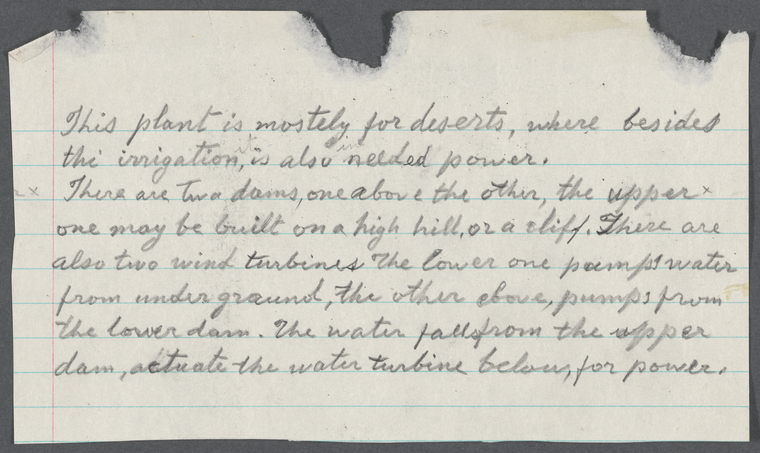 This plant is mostely for deserts, where besides
thi irrigation, is also needed power.
There are two dams, one above the other, the upper x
one may be built on a high hill, or a cliff. There are
also two wind turbines The lower one pumps water
from under graund, the other above, pumps from
the lower dam. The water falls from the upper
dam, actuate the water turbine below, for power.